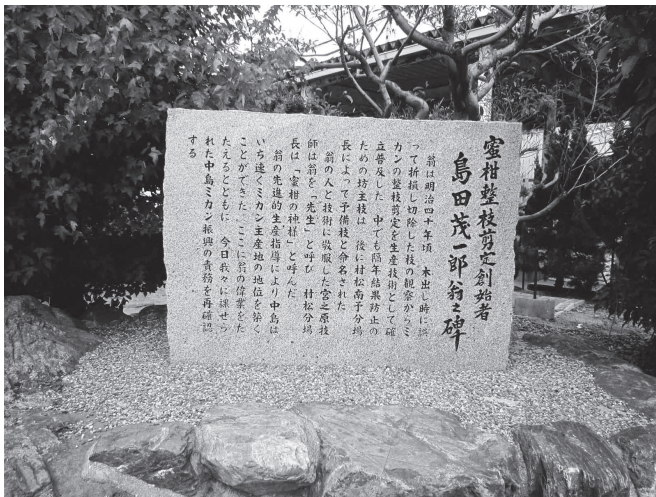 蜜柑整枝剪定創始者
島田茂一郎翁之碑
翁は明治四十年頃 木出し時に誤
って折損し切除した枝の観察からミ
カンの整枝剪定を生産技術として確
立普及した 中でも隔年結果防止の
ための坊主枝は 後に村松南予分場
長によって予備枝と命名された
翁の人と技術に敬服した宮之原技
師は翁を「先生」と呼び 村松分場
長は「蜜柑の神様」と呼んだ
翁の先進的生産指導により中島は
いち速くミカン主産地の地位を築く
ことができた ここに翁の偉業をた
たえるとともに 今日我々に課せら
れた中島ミカン振興の責務を再確認
する